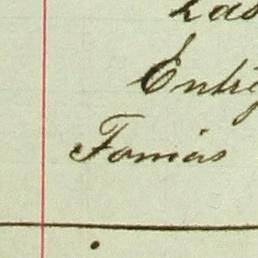 Las
Entre
Tomás